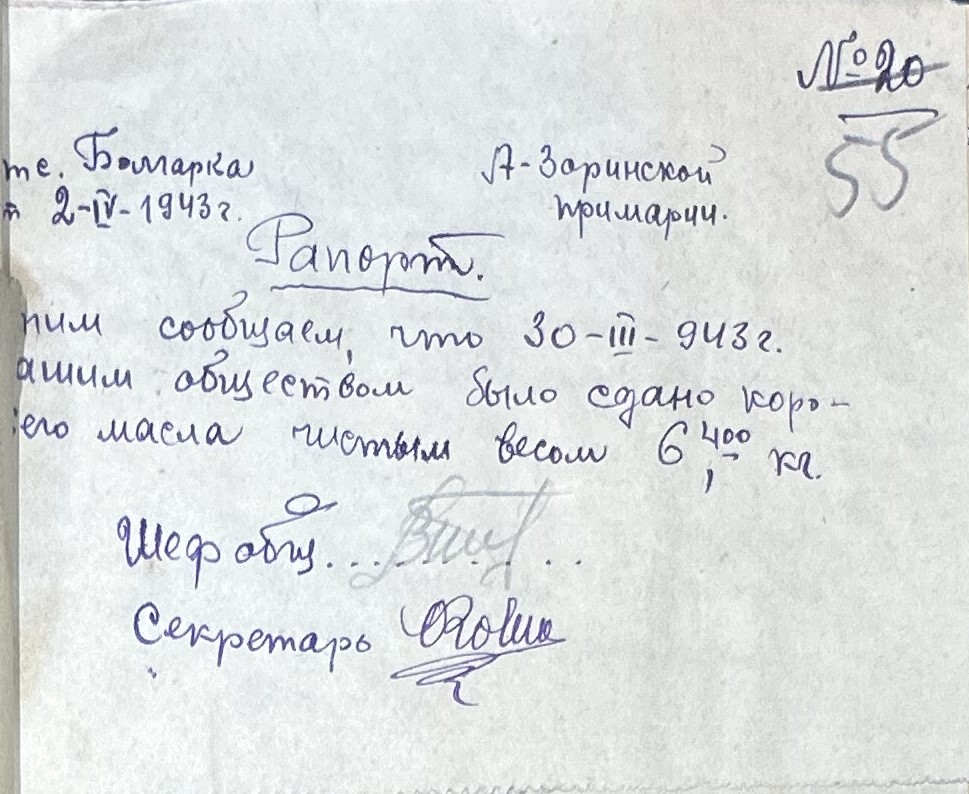 № 20
55
те. Болгарка
А-Заринской
2-IV-1943г.
примарии.
Рапорт.
ним сообщаем, что 30-III-943г.
ашим обществом было сдано коро-
его масла чистым весом 6,400 кг.
Шеф общ.......
Секретарь